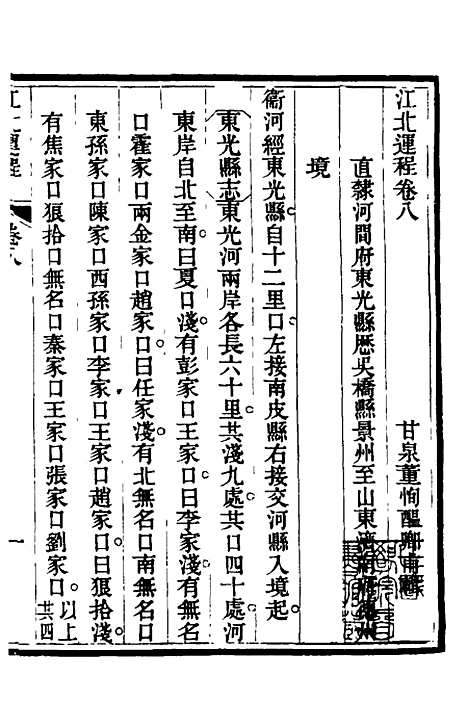 江北運程卷八
甘泉董恂醞卿甫輯
直隸河間府東光縣歷吳橋縣景州至山東濟南府德州
境
衞河經東光縣自十二里口左接南皮縣右接交河縣入境起
東光縣志東光河兩岸各長六十里共淺九處共口四十處河
東岸自北至南曰夏口淺有彭家口王家口曰李家淺有無名
口霍家口兩金家口趙家口曰任家淺有北無名口南無名口
東孫家口陳家口西孫家口李家口王家口趙家口曰狼拾淺
有焦家口狼拾口無名口秦家口王家口張家口劉家口以上
共四
江北運程
卷八
一